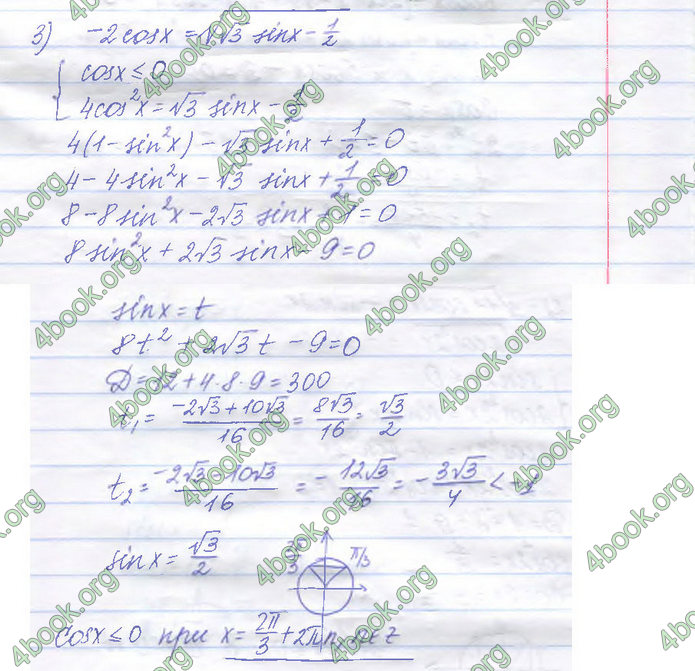 3) -2cosx = √(√3 sinx - 1/2)
{ cosx ≤ 0
4cos²x = √3 sinx - 1/2
4(1 - sin²x) - √3 sinx + 1/2 = 0
4 - 4sin²x - √3 sinx + 1/2 = 0
8 - 8sin²x - 2√3 sinx + 1 = 0
8sin²x + 2√3 sinx - 9 = 0
sinx = t
8t² + 2√3t - 9 = 0
D = 12 + 4·8·9 = 300
t₁ = (-2√3 + 10√3)/16 = 8√3/16 = √3/2
t₂ = (-2√3 - 10√3)/16 = -12√3/16 = -3√3/4 < -1
sinx = √3/2
2π/3 π/3
cosx ≤ 0 при x = 2π/3 + 2πn, n∈Z
4book.org